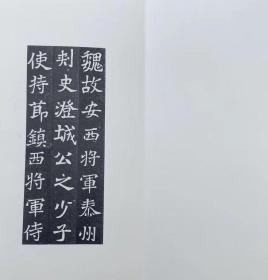 魏故安西將軍秦州
刾史澄城公之少子
使持莭鎮西將軍侍